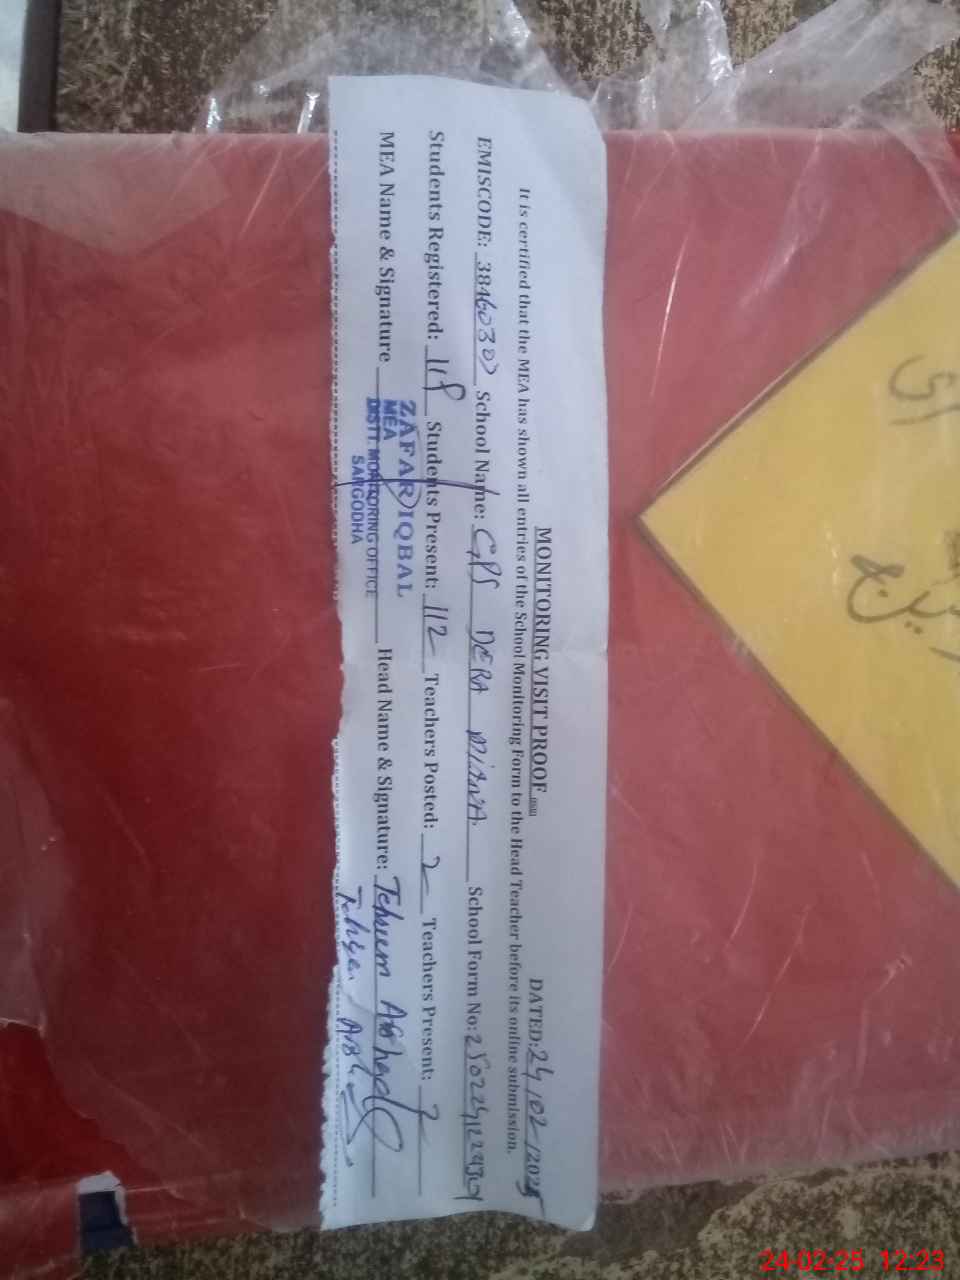 MONITORING VISIT PROOF
DATED: 24/02/2025
It is certified that the MEA has shown all entries of the School Monitoring Form to the Head Teacher before its online submission.
EMISCODE: 38460307 School Name: GPS DERA School Form No:
Students Registered: Students Present: 112 Teachers Posted: 2 Teachers Present: 2
MEA Name & Signature Head Name & Signature: Arshad
ZAFAR IQBAL
MEA
DISTT. MONITORING OFFICE
SARGODHA
24-02-25 12:23